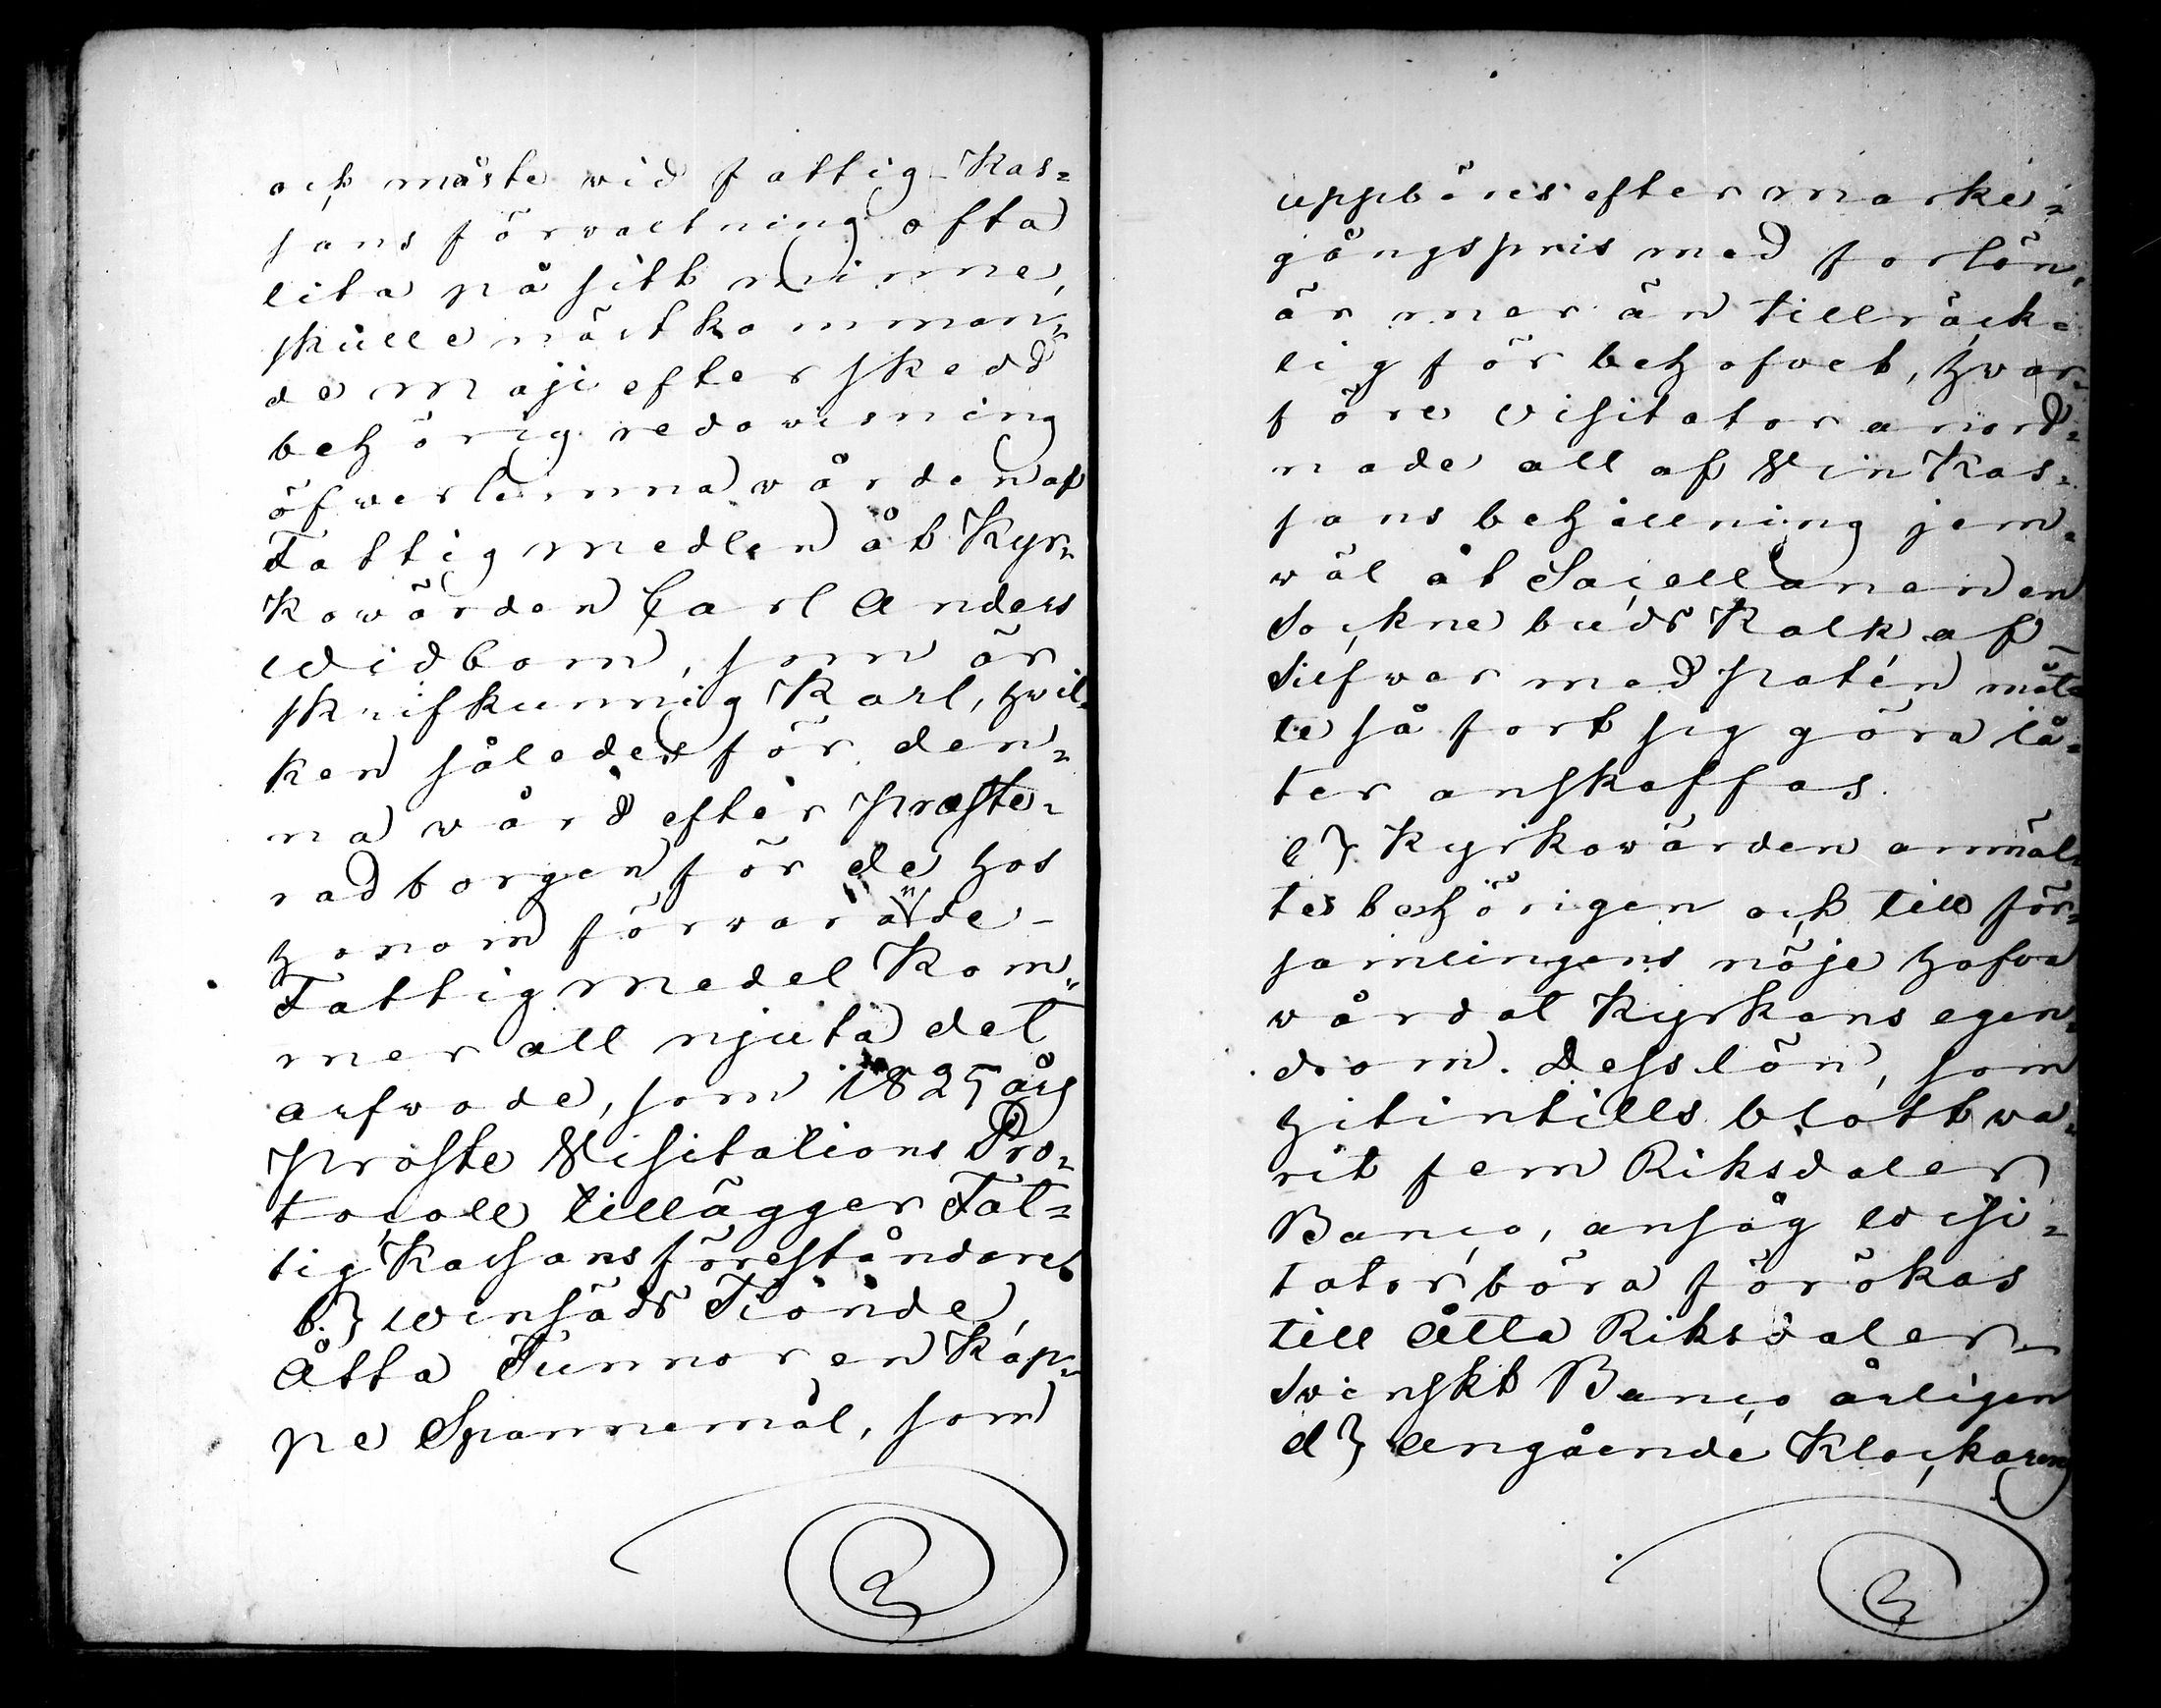 och måste wid fattig-Kas=
sans förvaltning ofta
lita på sitt minne,
skulle nästkomman=
de Maji efter skedd
behörig redovisning
öfwerlemna wården af
Fattigmedlen åt Kyr=
kowärden Carl Anders
Widbom, som är
skrifkunnig Karl, hwil=
ken således för den=
na wård efter præste=
rad borgen för de hos
honom förwarande
Fattigmedel Kom=
mer att njuta det
arfwode, som 1825 års
Proste Visitations Pro=
tocoll tillägger Fat=
tig Kassans föreståndare
b.} Winsäds Tionde
Åtta Tunnor en Kap=
pe Spannemål, som
uppbäres efter marke=
gångspris med forlön,
är mer än tillräck=
lig för behofvet, hwar=
före Visitator anord=
nade att af Vin Kas=
sans behållning jem=
wäl åt Sacellanen en
Sockne buds Kalk af
Silfwer med Patén måt=
te så fort sig göra lå=
ter anskaffas.
c} Kyrkowärden anmäl=
tes behörigen och till för=
samlingens nöje hafva
wårdat Kyrkans egen=
dom. Dess lön, som
hitintills blott wa=
rit fem Riksdaler
Banco, ansåg Visi=
tator böra förökas
till Åtta Riksdaler
Svenskt Banco årligen
d} Angående Klockaren